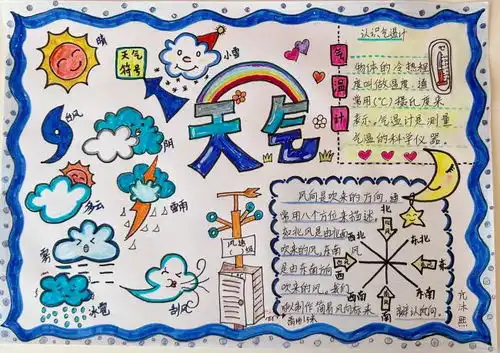 晴
天气
符号
小雪
天气
台风
阴
多云
雷雨
雾
冰雹
刮风
风速
( )级
气
温
计
认识气温计
物体的冷热程
度叫做温度，通
常用(℃)摄氏度来
表示，气温计是测量
气温的科学仪器。
风向是吹来的方向，通
常用八个方位来描述，
如北风是由北面
吹来的风，东南风
是由东南方向
吹来的风，我们
可以制作简易风向标来
辨认风向。
北
东北
西北
东
西
东南
西南
南